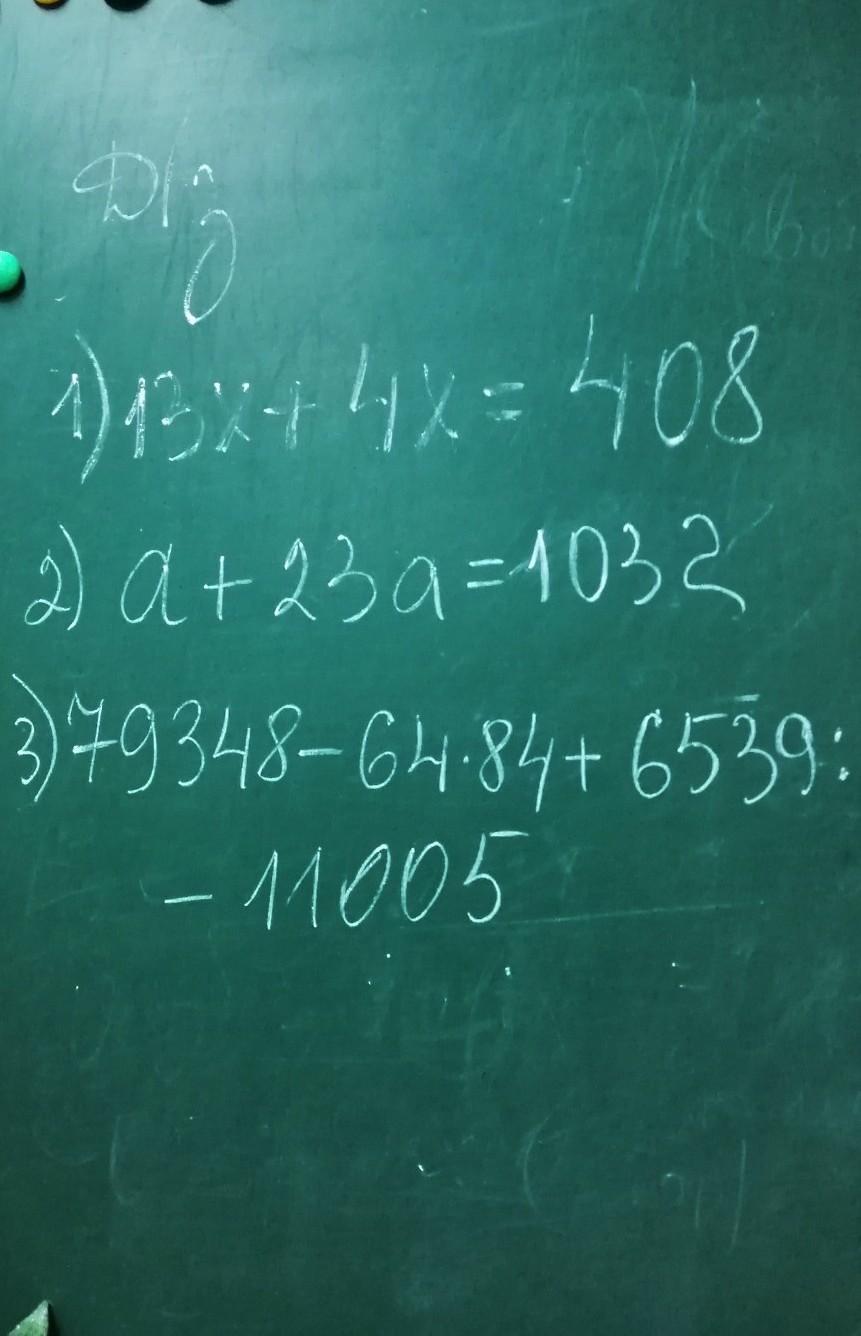 Д/з
1) 13x + 4x = 408
2) a + 23a = 1032
3) 79348 - 64·84 + 6539:
- 11005